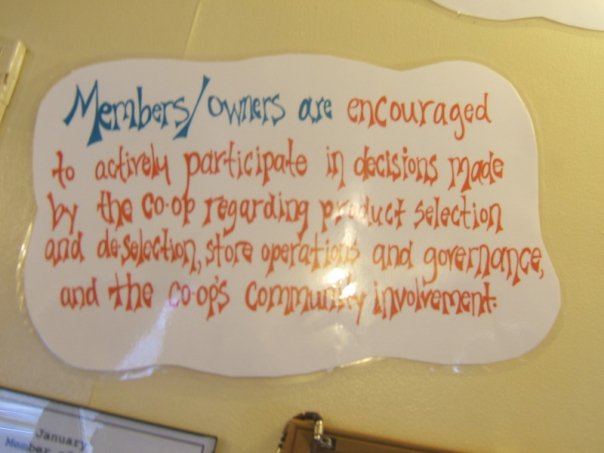 Members/owners are encouraged
to actively participate in decisions made
by the co-op regarding product selection
and de-selection, store operations and governance,
and the co-op's community involvement.
January
Member of